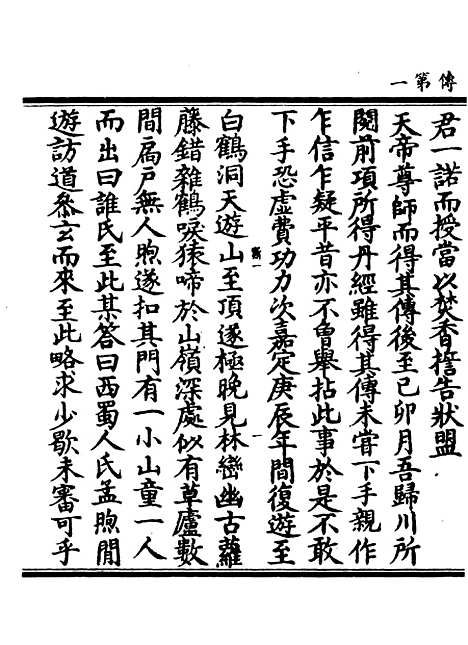 傳第一
君一諾而授當以焚香誓告狀盟
天帝尊師而得其傳後至己卯月吾歸川所
閱前項所得丹經雖得其傳未嘗下手親作
乍信乍疑平昔亦不曾舉拈此事於是不敢
下手恐虛費功力次嘉定庚辰年間復遊至
白鶴洞天遊山至頂遂極晚見林巒幽古蘿
藤錯雜鶴唳猿啼於山嶺深處似有草廬數
間扃戶無人煦遂扣其門有一小山童一人
而出曰誰氏至此某答曰西蜀人氏孟煦閒
遊訪道叅玄而來至此略求少歇未審可乎